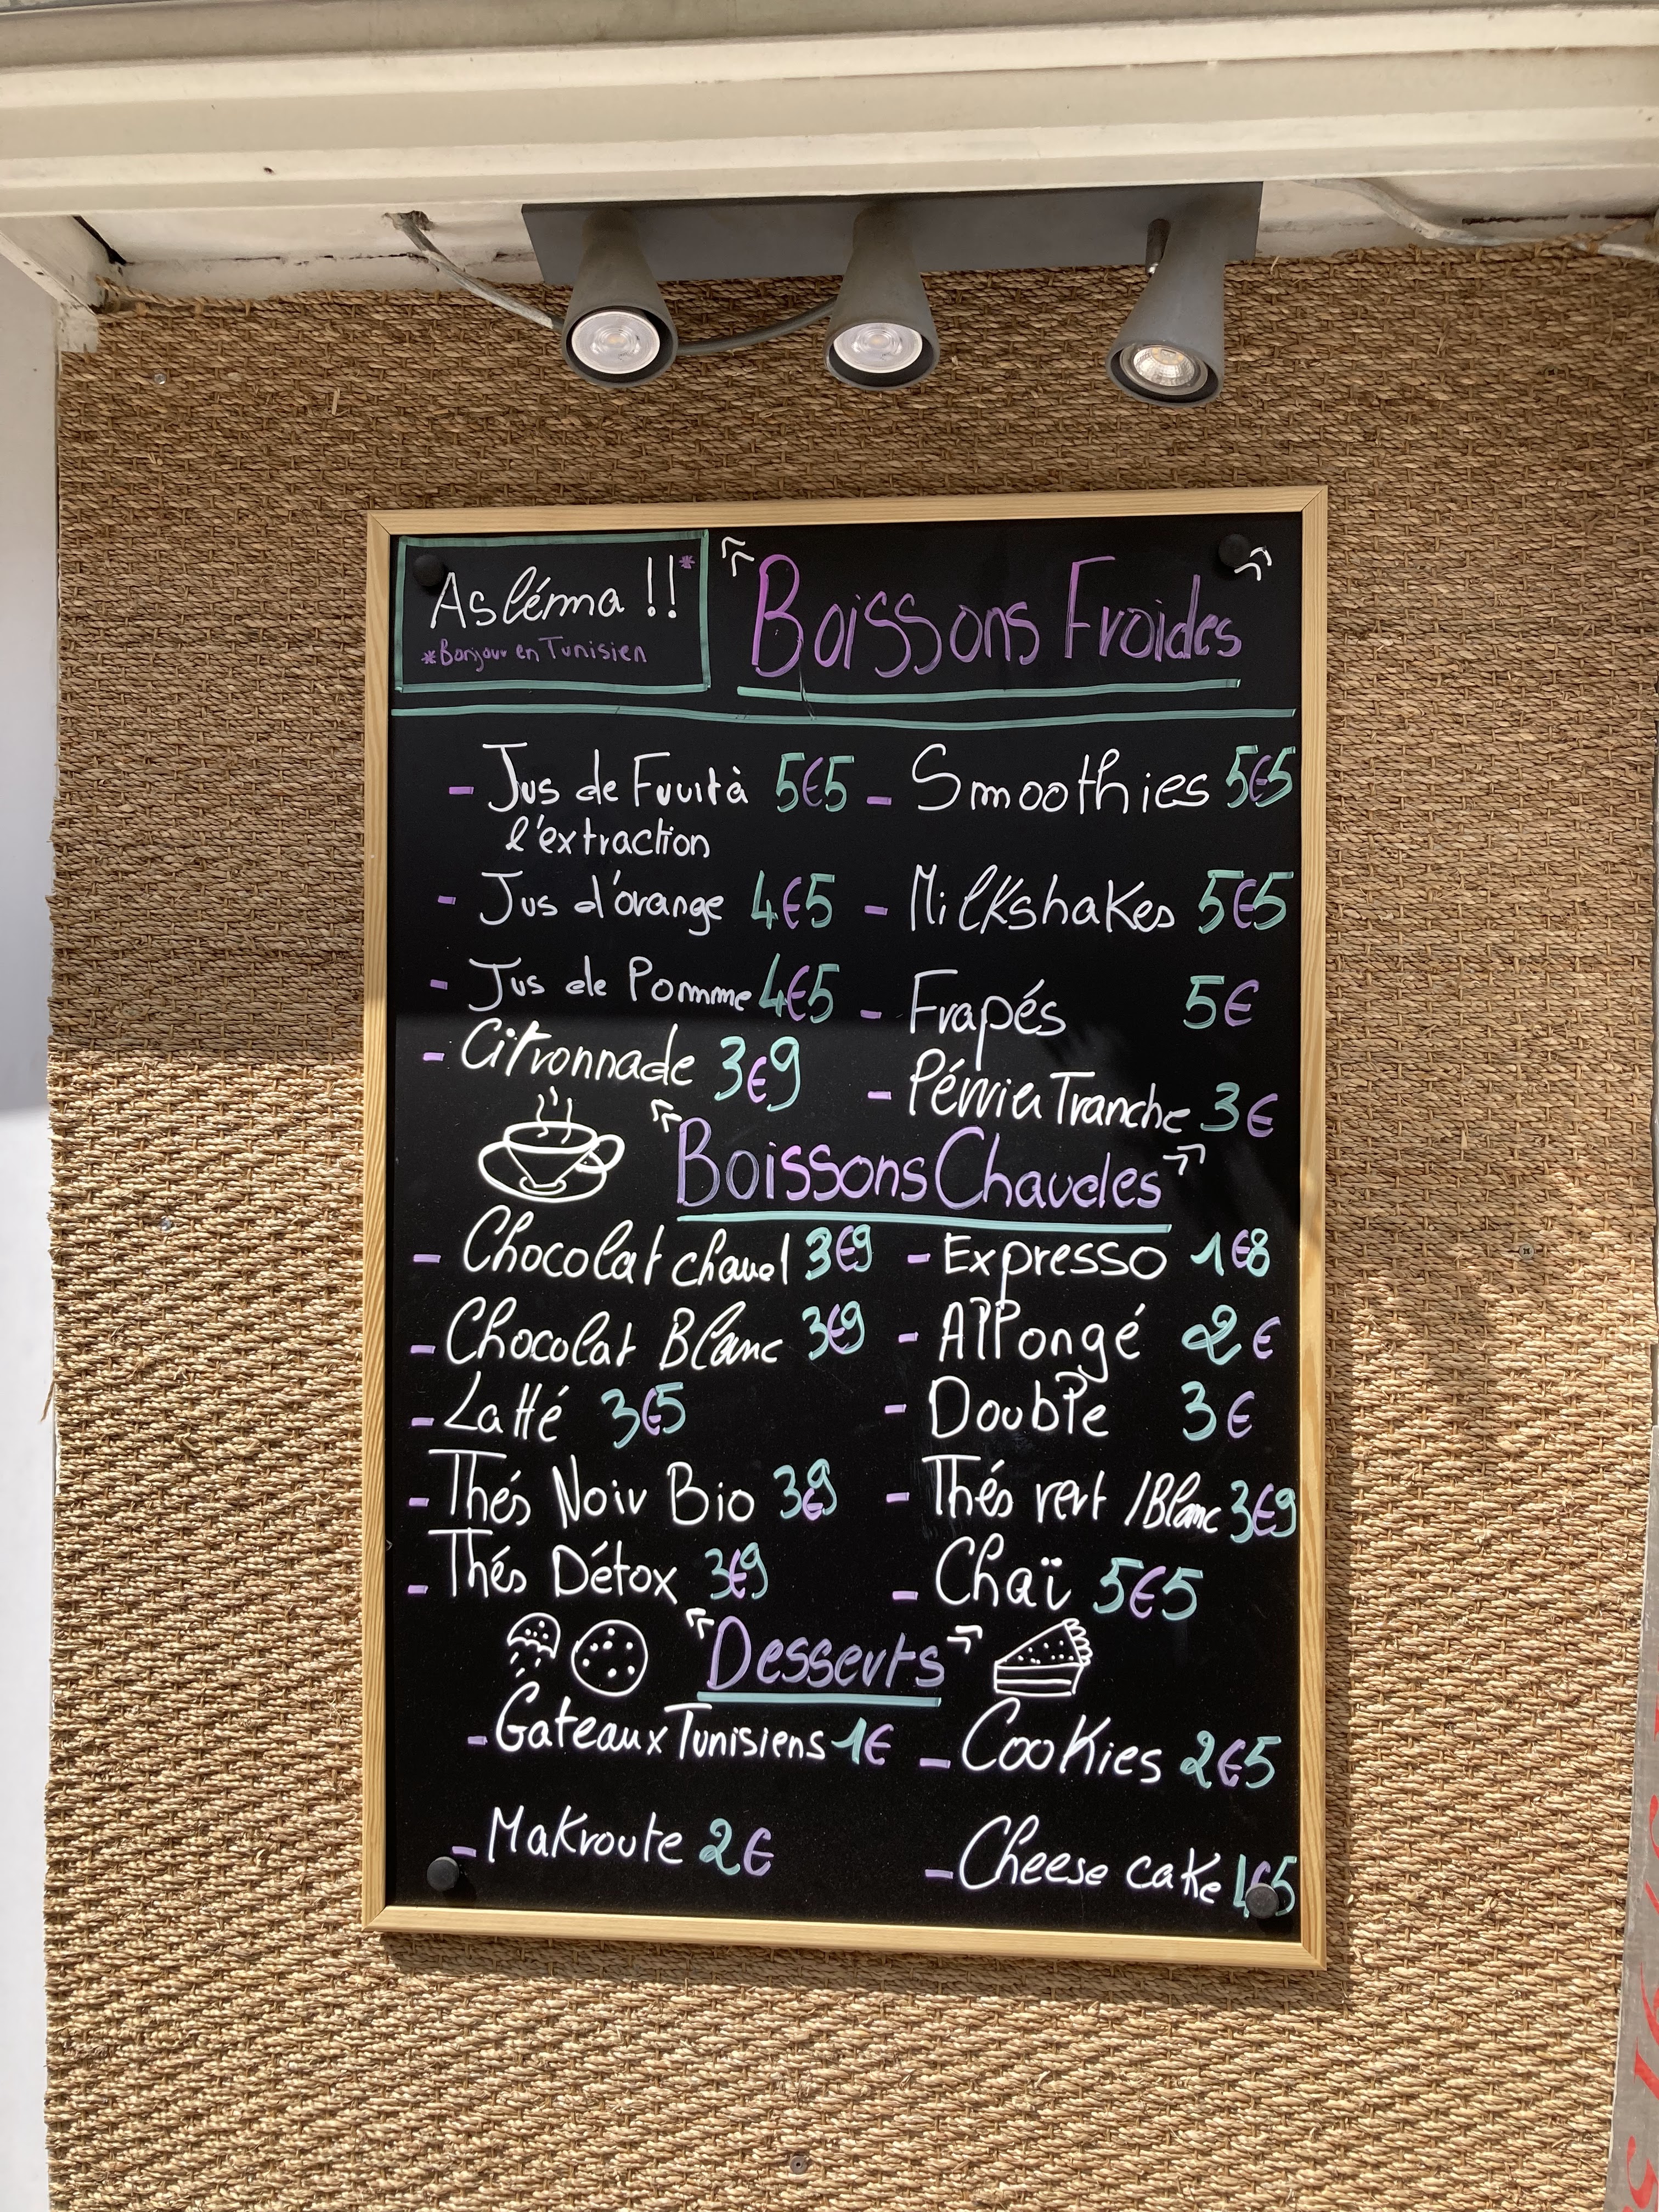 Asléma !!*
*Bonjour en Tunisien
Boissons Froides
- Jus de Fruit à 5€5
l'extraction
- Smoothies 5€5
- Jus d'orange 4€5
- Milkshakes 5€5
- Jus de Pomme 4€5
- Frapés 5€
- Citronnade 3€9
- Pérrier Tranche 3€
Boissons Chaudes
- Chocolat chaud 3€9
- Expresso 1€8
- Chocolat Blanc 3€9
- Allongé 2€
- Latté 3€5
- Double 3€
- Thés Noir Bio 3€9
- Thés vert / Blanc 3€9
- Thés Détox 3€9
- Chaï 5€5
Desserts
- Gateaux Tunisiens 1€
- Cookies 2€5
- Makroute 2€
- Cheese cake 4€5